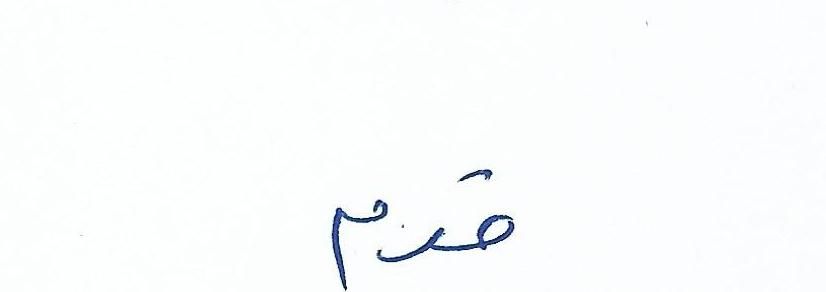 قدم